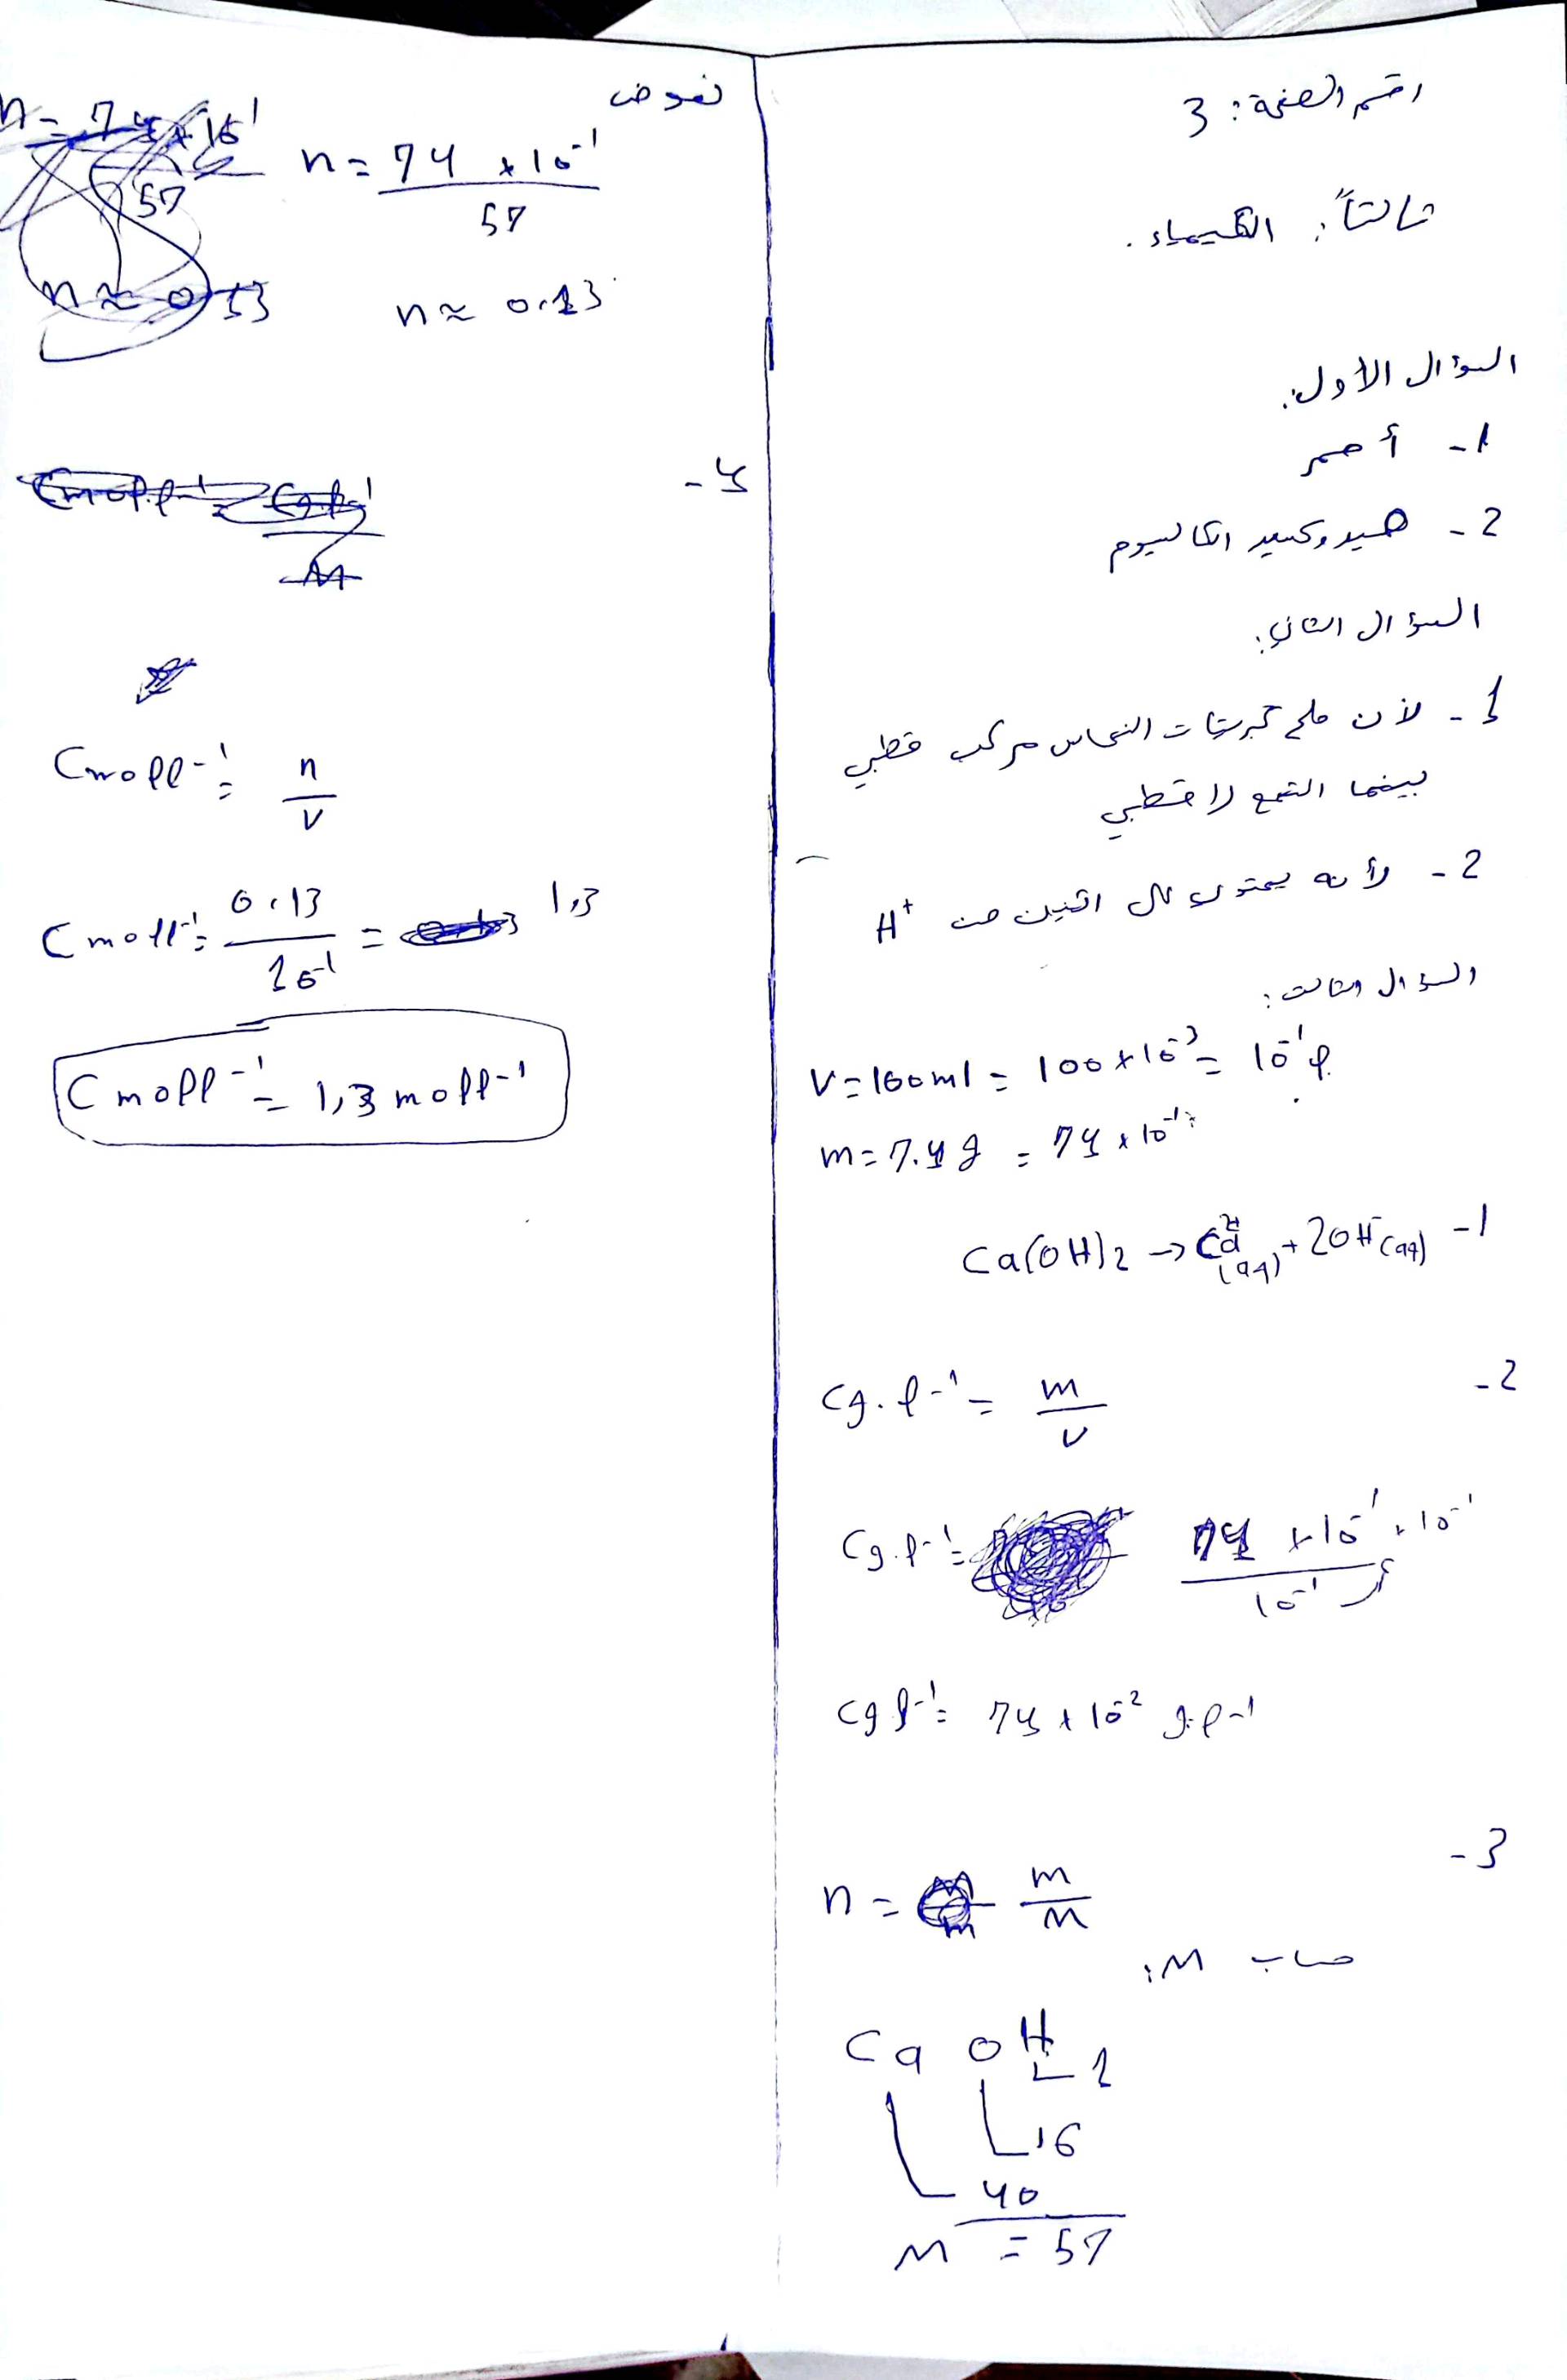 رقم الصفحة: 3
ثالثاً: الكيمياء.
السؤال الأول:
1- أحمر
2- هيدروكسيد الكالسيوم
السؤال الثاني:
1- لأن ملح كبريتات النحاس مركب قطبي
بينما الشمع لا قطبي
2- لأنه يحتوي على اثنين من H⁺
السؤال الثالث:
V=100ml = 100×10⁻³ = 10⁻¹ l.
m=7.4 g = 74×10⁻¹
Ca(OH)2 → Ca²⁺(aq) + 2OH⁻(aq) -1
-2
Cg.l⁻¹ = m/v
Cg.l⁻¹ = 74×10⁻¹×10⁻¹/10⁻¹
Cg l⁻¹ = 74×10⁻² g.l⁻¹
-3
n = m/M
حساب M:
Ca OH 2
16
40
M = 57
نعوض
n = 74×10⁻¹/57
n ≈ 0.13
-4
Cmoll⁻¹ = n/v
Cmoll⁻¹ = 0.13/10⁻¹ = 1,3
Cmoll⁻¹ = 1,3 moll⁻¹